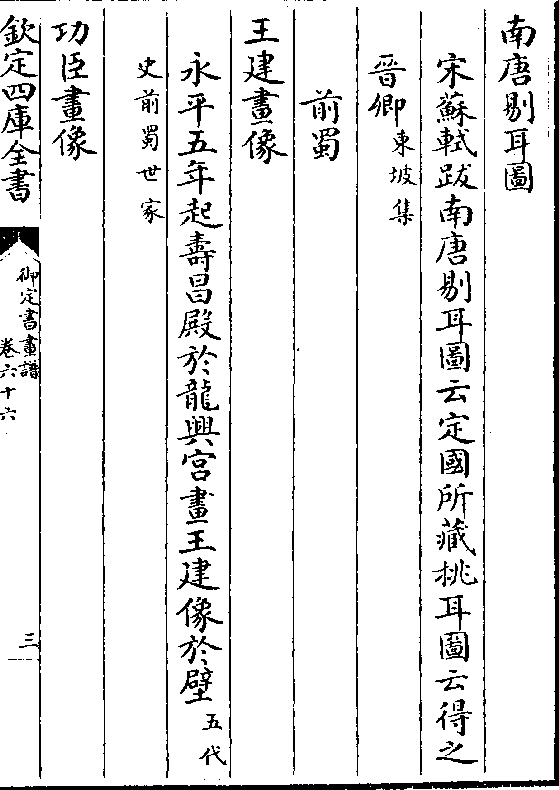 南唐剔耳圖
宋蘇軾跋南唐剔耳圖云定國所藏挑耳圖云得之
晉卿東坡集
前蜀
王建畫像
永平五年起壽昌殿於龍興宮畫王建像於壁五代
史前蜀世家
功臣畫像
欽定四庫全書
御定書畫譜
卷六十六
三